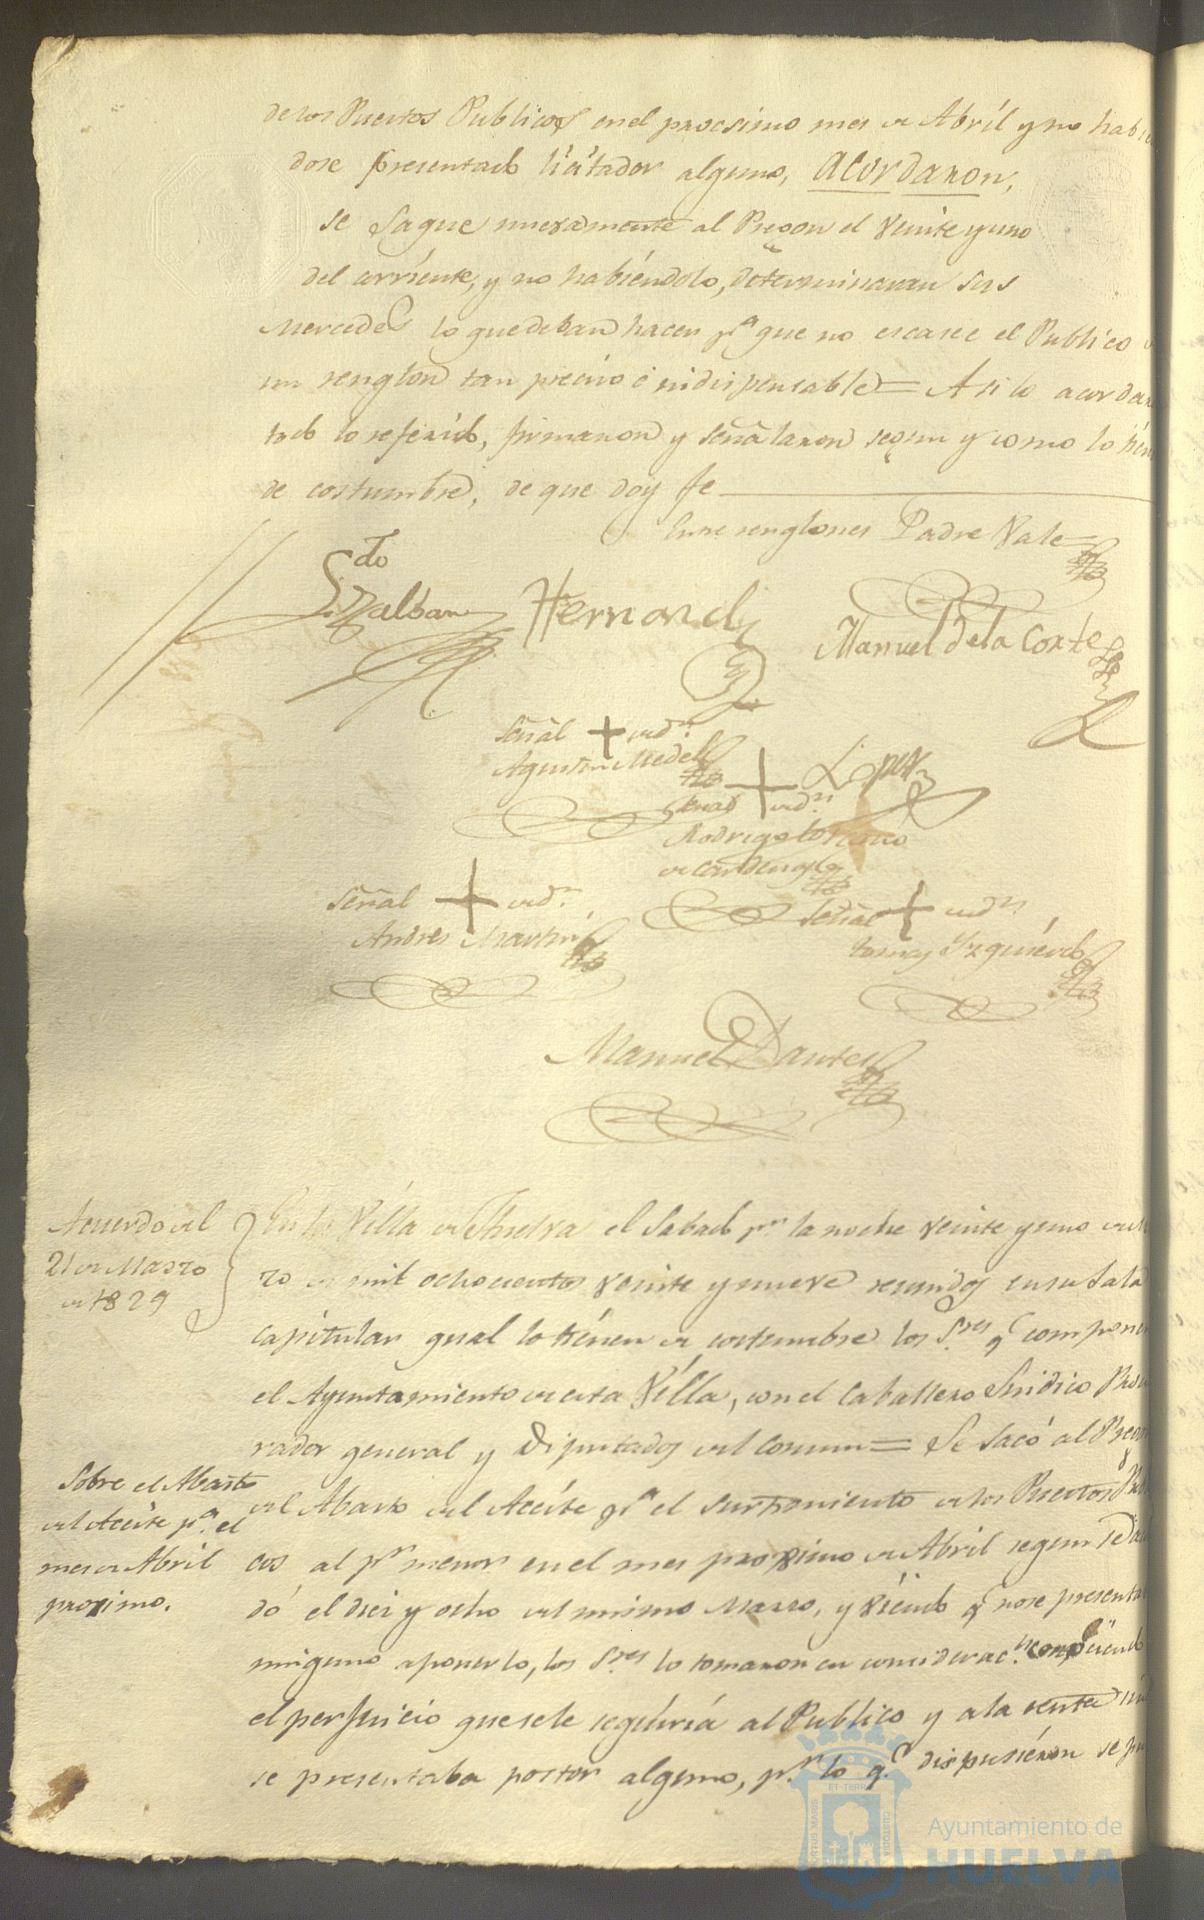 de los Puestos Publicos en el procsimo mes de Abril y no habien
dose presentado licitador alguno, acordaron,
se saque nuevamente al Pregon el veinte y uno
del corriente, y no habiéndolo, determinaran sus
Mercedes lo que deban hacer pa. que no escasee el Publico
un renglon tan preciso é indispensable = Asi lo acordar
todo lo referido, firmaron y señalaron segun y como lo tien
de costumbre, de que doy fe
Entre renglones Padre Vale
Hernand
Manuel de la Corte
Señal + de
Agustin Medel
Lopez
Señal + de
Rodrigo
Señal + de
Andres Martin
Señal + de
Tomas Yzquierdo
Manuel Dantes
Acuerdo del
21 de Marzo
de 1829
En la Villa de Huelva el Sabado pr. la noche veinte y uno de
zo de mil ochocientos veinte y nueve reunidos en su Sala
capitular qual lo tiénen de costumbre los Sres. q componen
el Ayuntamiento de esta Villa, con el Caballero Sindico Procu
rador general y Diputados del Comun = Se sacó al Pregon
Sobre el Abasto
del Aceite pa. el
mes de Abril
proximo.
del Abasto del Aceite pa. el surtimiento de los Puestos Publi
cos al pr. menor en el mes proximo de Abril segun se
dó el diez y ocho del mismo Marzo, y viendo q no se presenta
ninguno aponerlo, los Sres. lo tomaron en considerac.n
el perjuicio que sele seguiria al Publico y ala renta
se presentaba postor alguno, pr. lo q. dispusiéron se
ET TERRÆ
PORTUS MARIS
CUSTODIA
Ayuntamiento de
HUELVA